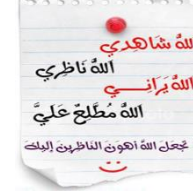 اللهُ شَاهِدِي
اللهُ نَاظِري
اللهُ يَرَانِـــي
اللهُ مُطَّلِعٌ عَلَيَّ
تجعل اللهَ أهون الناظرين إليك